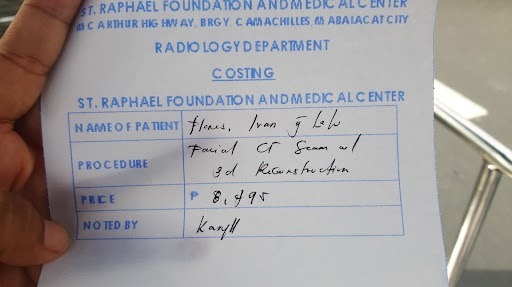 ST. RAPHAEL FOUNDATION AND MEDICAL CENTER
MC ARTHUR HIGHWAY, BRGY. CAMACHILES, MABALACAT CITY
RADIOLOGY DEPARTMENT
COSTING
ST. RAPHAEL FOUNDATION AND MEDICAL CENTER
NAME OF PATIENT Flores, Ivan
PROCEDURE Facial CT Scan w/
3d Reconstruction
PRICE ₱ 8,495
NOTED BY Karyll